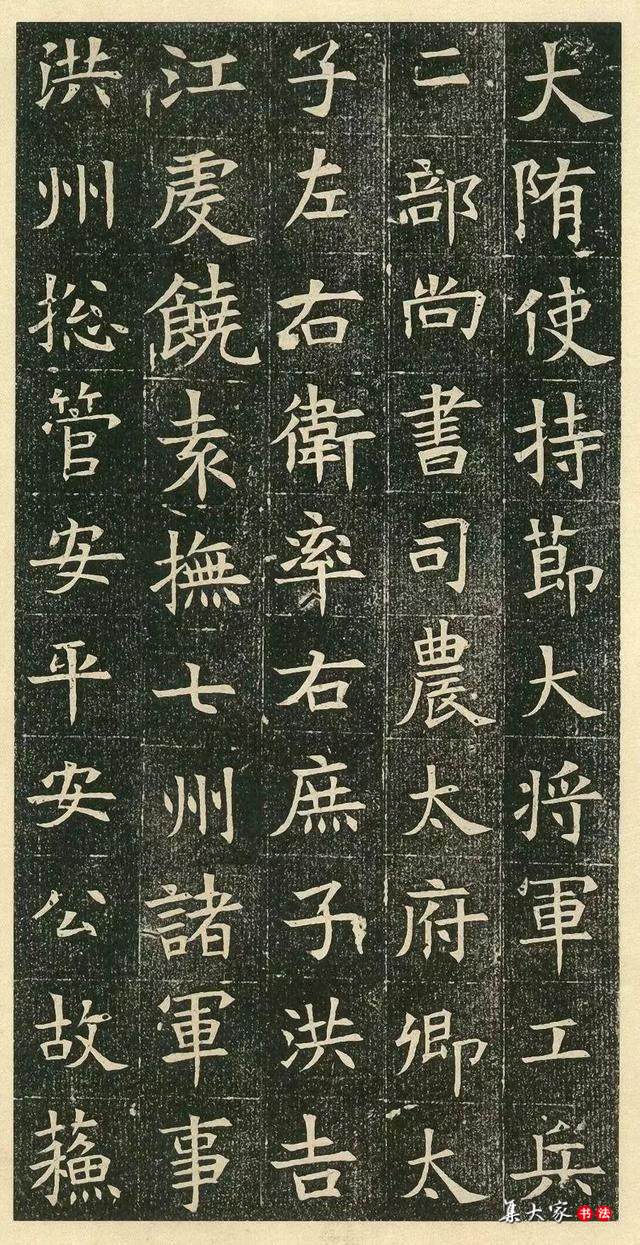 大陏使持莭大将軍工兵
二部尚書司農太府卿太
子左右衛率右庶子洪吉
江虔饒袁撫七州諸軍事
洪州捴管安平安公故蘓
集大家书法